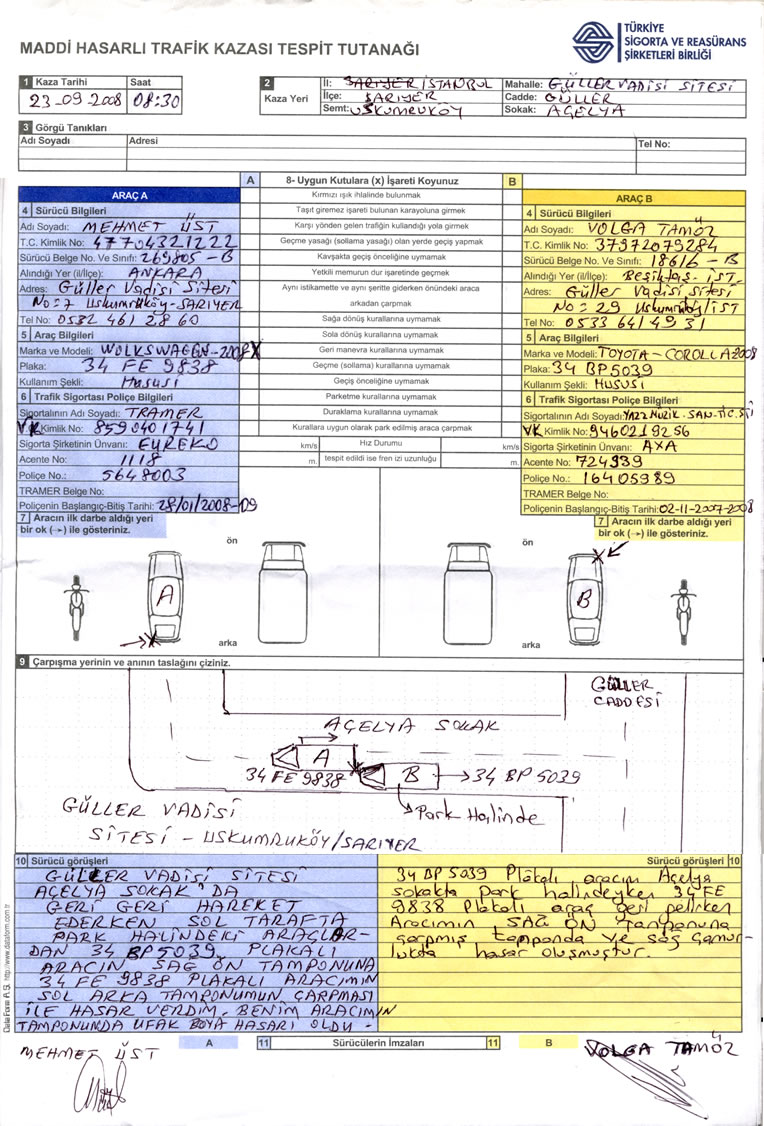 MADDİ HASARLI TRAFİK KAZASI TESPİT TUTANAĞI
TÜRKİYE
SİGORTA VE REASÜRANS
ŞİRKETLERİ BİRLİĞİ
1 Kaza Tarihi Saat
23-09-2008 08:30
2 Kaza Yeri
İl: SARIYER/İSTANBUL
İlçe: SARIYER
Semt: USKUMRUKÖY
Mahalle: GÜLLER VADİSİ SİTESİ
Cadde: GÜLLER
Sokak: AÇELYA
3 Görgü Tanıkları
Adı Soyadı Adresi Tel No:
A 8- Uygun Kutulara (x) İşareti Koyunuz B
Kırmızı ışık ihlalinde bulunmak
Taşıt giremez işareti bulunan karayoluna girmek
Karşı yönden gelen trafiğin kullandığı yola girmek
Geçme yasağı (sollama yasağı) olan yerde geçiş yapmak
Kavşakta geçiş önceliğine uymamak
Yetkili memurun dur işaretinde geçmek
Aynı istikamette ve aynı şeritte giderken önündeki araca
arkadan çarpmak
Sağa dönüş kurallarına uymamak
Sola dönüş kurallarına uymamak
X Geri manevra kurallarına uymamak
Geçme (sollama) kurallarına uymamak
Geçiş önceliğine uymamak
Parketme kurallarına uymamak
Duraklama kurallarına uymamak
Kurallara uygun olarak park edilmiş araca çarpmak
km/s Hız Durumu km/s
m. tespit edildi ise fren izi uzunluğu m.
ARAÇ A
4 Sürücü Bilgileri
Adı Soyadı: MEHMET ÜST
T.C. Kimlik No: 47704321222
Sürücü Belge No. Ve Sınıfı: 269805-B
Alındığı Yer (il/ilçe): ANKARA
Adres: Güller Vadisi Sitesi
No=7 Uskumruköy-SARIYER
Tel No: 0532 461 28 60
5 Araç Bilgileri
Marka ve Modeli: WOLKSWAGEN-2008
Plaka: 34 FE 9838
Kullanım Şekli: HUSUSİ
6 Trafik Sigortası Poliçe Bilgileri
Sigortalının Adı Soyadı: TRAMER
VK Kimlik No: 8590401741
Sigorta Şirketinin Ünvanı: EUREKO
Acente No: 1118
Poliçe No.: 5648003
TRAMER Belge No:
Poliçenin Başlangıç-Bitiş Tarihi: 28/01/2008-09
7 Aracın ilk darbe aldığı yeri
bir ok (→) ile gösteriniz.
ARAÇ B
4 Sürücü Bilgileri
Adı Soyadı: VOLGA TAMÖZ
T.C. Kimlik No: 37972079284
Sürücü Belge No. Ve Sınıfı: 18616-B
Alındığı Yer (il/ilçe): Beşiktaş-İST
Adres: Güller Vadisi sitesi
No=29 Uskumruköy/İST
Tel No: 0533 641 49 31
5 Araç Bilgileri
Marka ve Modeli: TOYOTA-COROLLA 2008
Plaka: 34 BP 5039
Kullanım Şekli: HUSUSİ
6 Trafik Sigortası Poliçe Bilgileri
Sigortalının Adı Soyadı: MÜZİK-SAN-TİC.ŞTİ
VK Kimlik No: 9460219256
Sigorta Şirketinin Ünvanı: AXA
Acente No: 724939
Poliçe No: 16405989
TRAMER Belge No:
Poliçenin Başlangıç-Bitiş Tarihi: 02-11-2007-2008
7 Aracın ilk darbe aldığı yeri
bir ok (→) ile gösteriniz.
ön ön
A B
arka arka
9 Çarpışma yerinin ve anının taslağını çiziniz.
GÜLLER
CADDESİ
AÇELYA SOKAK
A
34 FE 9838 B → 34 BP 5039
Park Halinde
GÜLLER VADİSİ
SİTESİ - USKUMRUKÖY/SARIYER
10 Sürücü görüşleri
GÜLLER VADİSİ SİTESİ
AÇELYA SOKAK'DA
GERİ GERİ HAREKET
EDERKEN SOL TARAFTA
PARK HALİNDEKİ ARAÇLAR-
DAN 34 BP 5039 PLAKALI
ARACIN SAĞ ÖN TAMPONUNA
34 FE 9838 PLAKALI ARACIMIN
SOL ARKA TAMPONUMUN ÇARPMASI
İLE HASAR VERDİM. BENİM ARACIMIN
TAMPONUNDA UFAK BOYA HASARI OLDU-
Sürücü görüşleri 10
34 BP 5039 Plakalı aracım Açelya
sokakta Park halindeyken 34 FE
9838 Plakalı araç geri gelirken
Aracımın SAĞ ÖN Tamponuna
çarpmış tamponda ve sağ çamur-
lukta hasar oluşmuştur.
A 11 Sürücülerin İmzaları 11 B
MEHMET ÜST
VOLGA TAMÖZ
Data Form A.Ş. http://www.dataform.com.tr